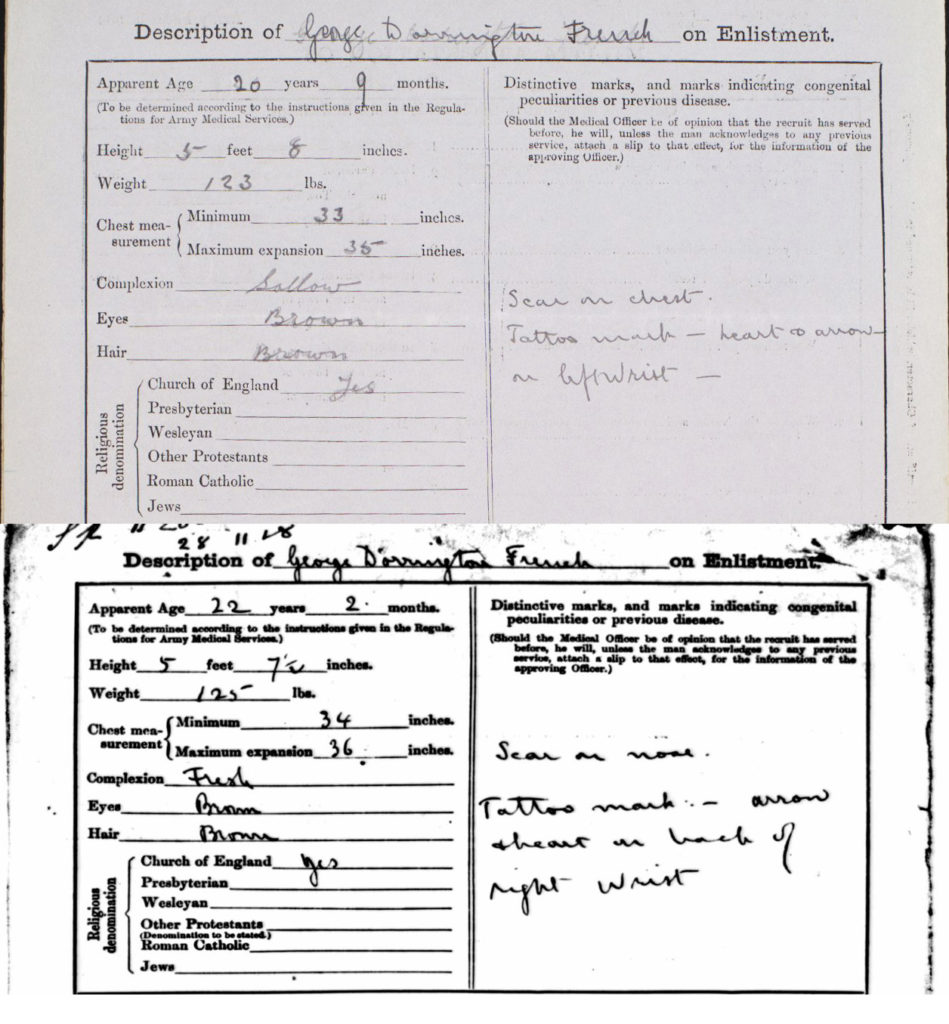 Description of George Dorrington French on Enlistment.
Apparent Age 20 years 9 months.
(To be determined according to the instructions given in the Regula-
tions for Army Medical Services.)
Height 5 feet 8 inches.
Weight 123 lbs.
Chest mea-
surement
Minimum 33 inches.
Maximum expansion 35 inches.
Complexion Sallow
Eyes Brown
Hair Brown
Religious
denomination
Church of England Yes
Presbyterian
Wesleyan
Other Protestants
Roman Catholic
Jews
Distinctive marks, and marks indicating congenital
peculiarities or previous disease.
(Should the Medical Officer be of opinion that the recruit has served
before, he will, unless the man acknowledges to any previous
service, attach a slip to that effect, for the information of the
approving Officer.)
Scar on chest.
Tattoo mark – heart & arrow
on left wrist –
28 11 18
Description of George Dorrington French on Enlistment.
Apparent Age 22 years 2. months.
(To be determined according to the instructions given in the Regula-
tions for Army Medical Services.)
Height 5 feet 7½ inches.
Weight 125 lbs.
Chest mea-
surement
Minimum 34 inches.
Maximum expansion 36 inches.
Complexion Fresh
Eyes Brown
Hair Brown
Religious
denomination
Church of England Yes
Presbyterian
Wesleyan
Other Protestants
(Denomination to be stated.)
Roman Catholic
Jews
Distinctive marks, and marks indicating congenital
peculiarities or previous disease.
(Should the Medical Officer be of opinion that the recruit has served
before, he will, unless the man acknowledges to any previous
service, attach a slip to that effect, for the information of the
approving Officer.)
Scar on nose.
Tattoo mark :– arrow
& heart on back of
right wrist